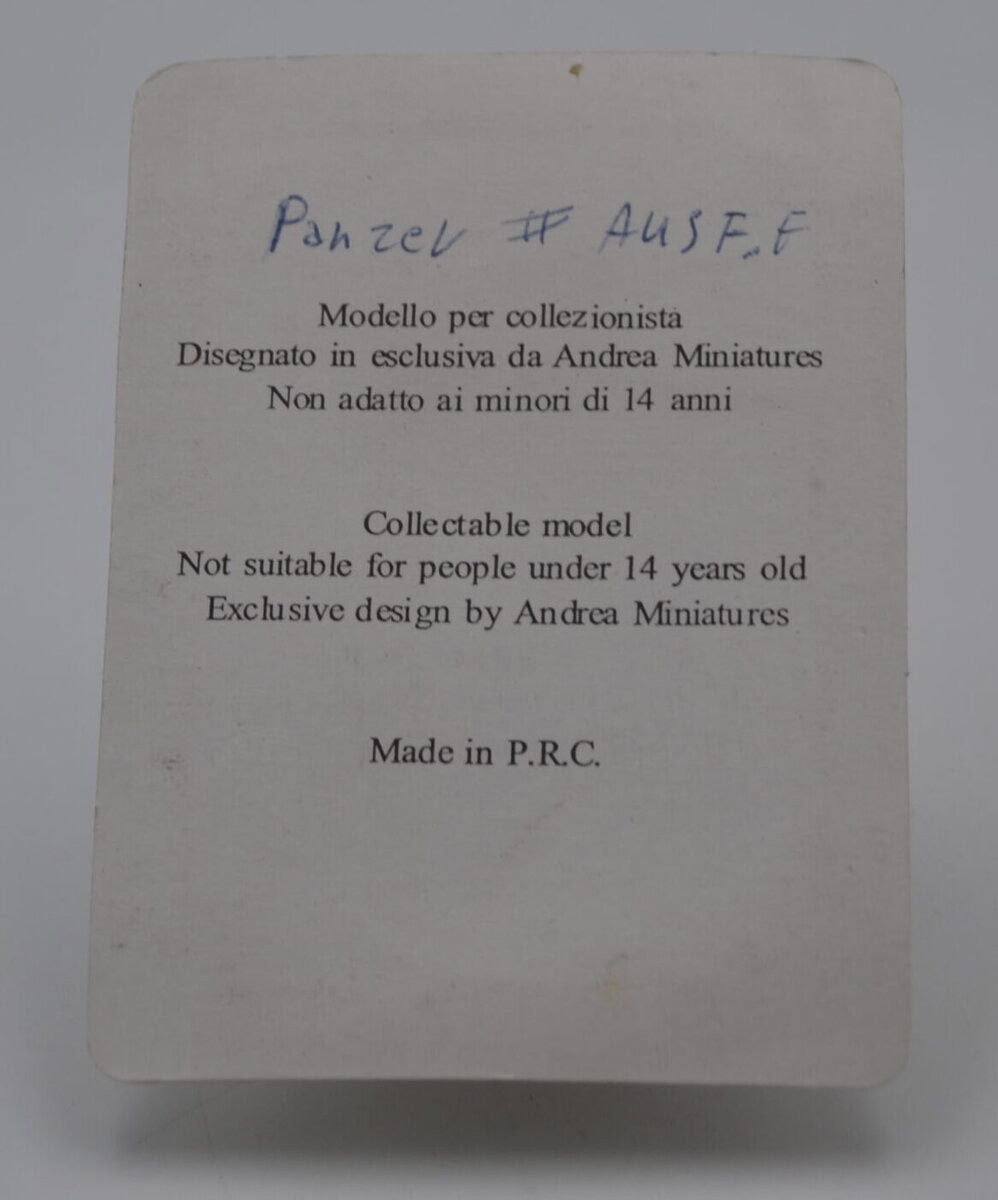 Panzer II AUSF. F
Modello per collezionista
Disegnato in esclusiva da Andrea Miniatures
Non adatto ai minori di 14 anni
Collectable model
Not suitable for people under 14 years old
Exclusive design by Andrea Miniatures
Made in P.R.C.